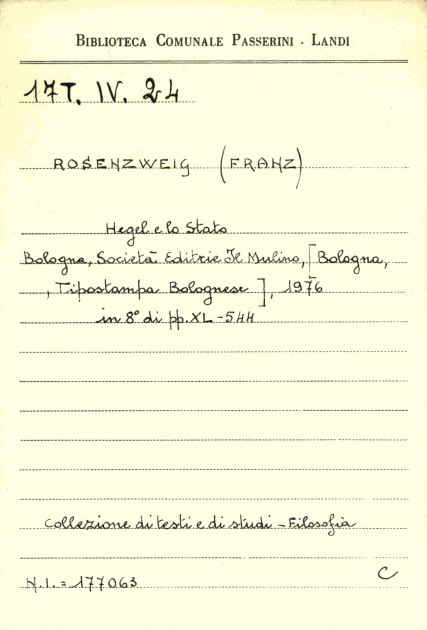 BIBLIOTECA COMUNALE PASSERINI - LANDI
17T. IV. 24
ROSENZWEIG (FRANZ)
Hegel e lo Stato
Bologna, Società Editrie Il Mulino, [Bologna,
, Tipostampa Bolognese ], 1976
in 8° di pp. XL - 544
Collezione di testi e di studi - Filosofia
N.I. = 177063
C